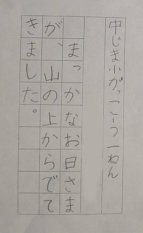 中じま小がっこう一ねん
まっかなお日さま
が、山の上からでて
きました。